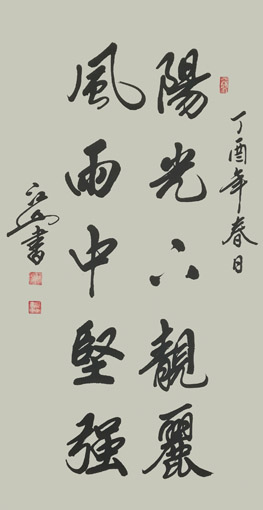 丁酉年春日
陽光下靚麗
風雨中堅強
書